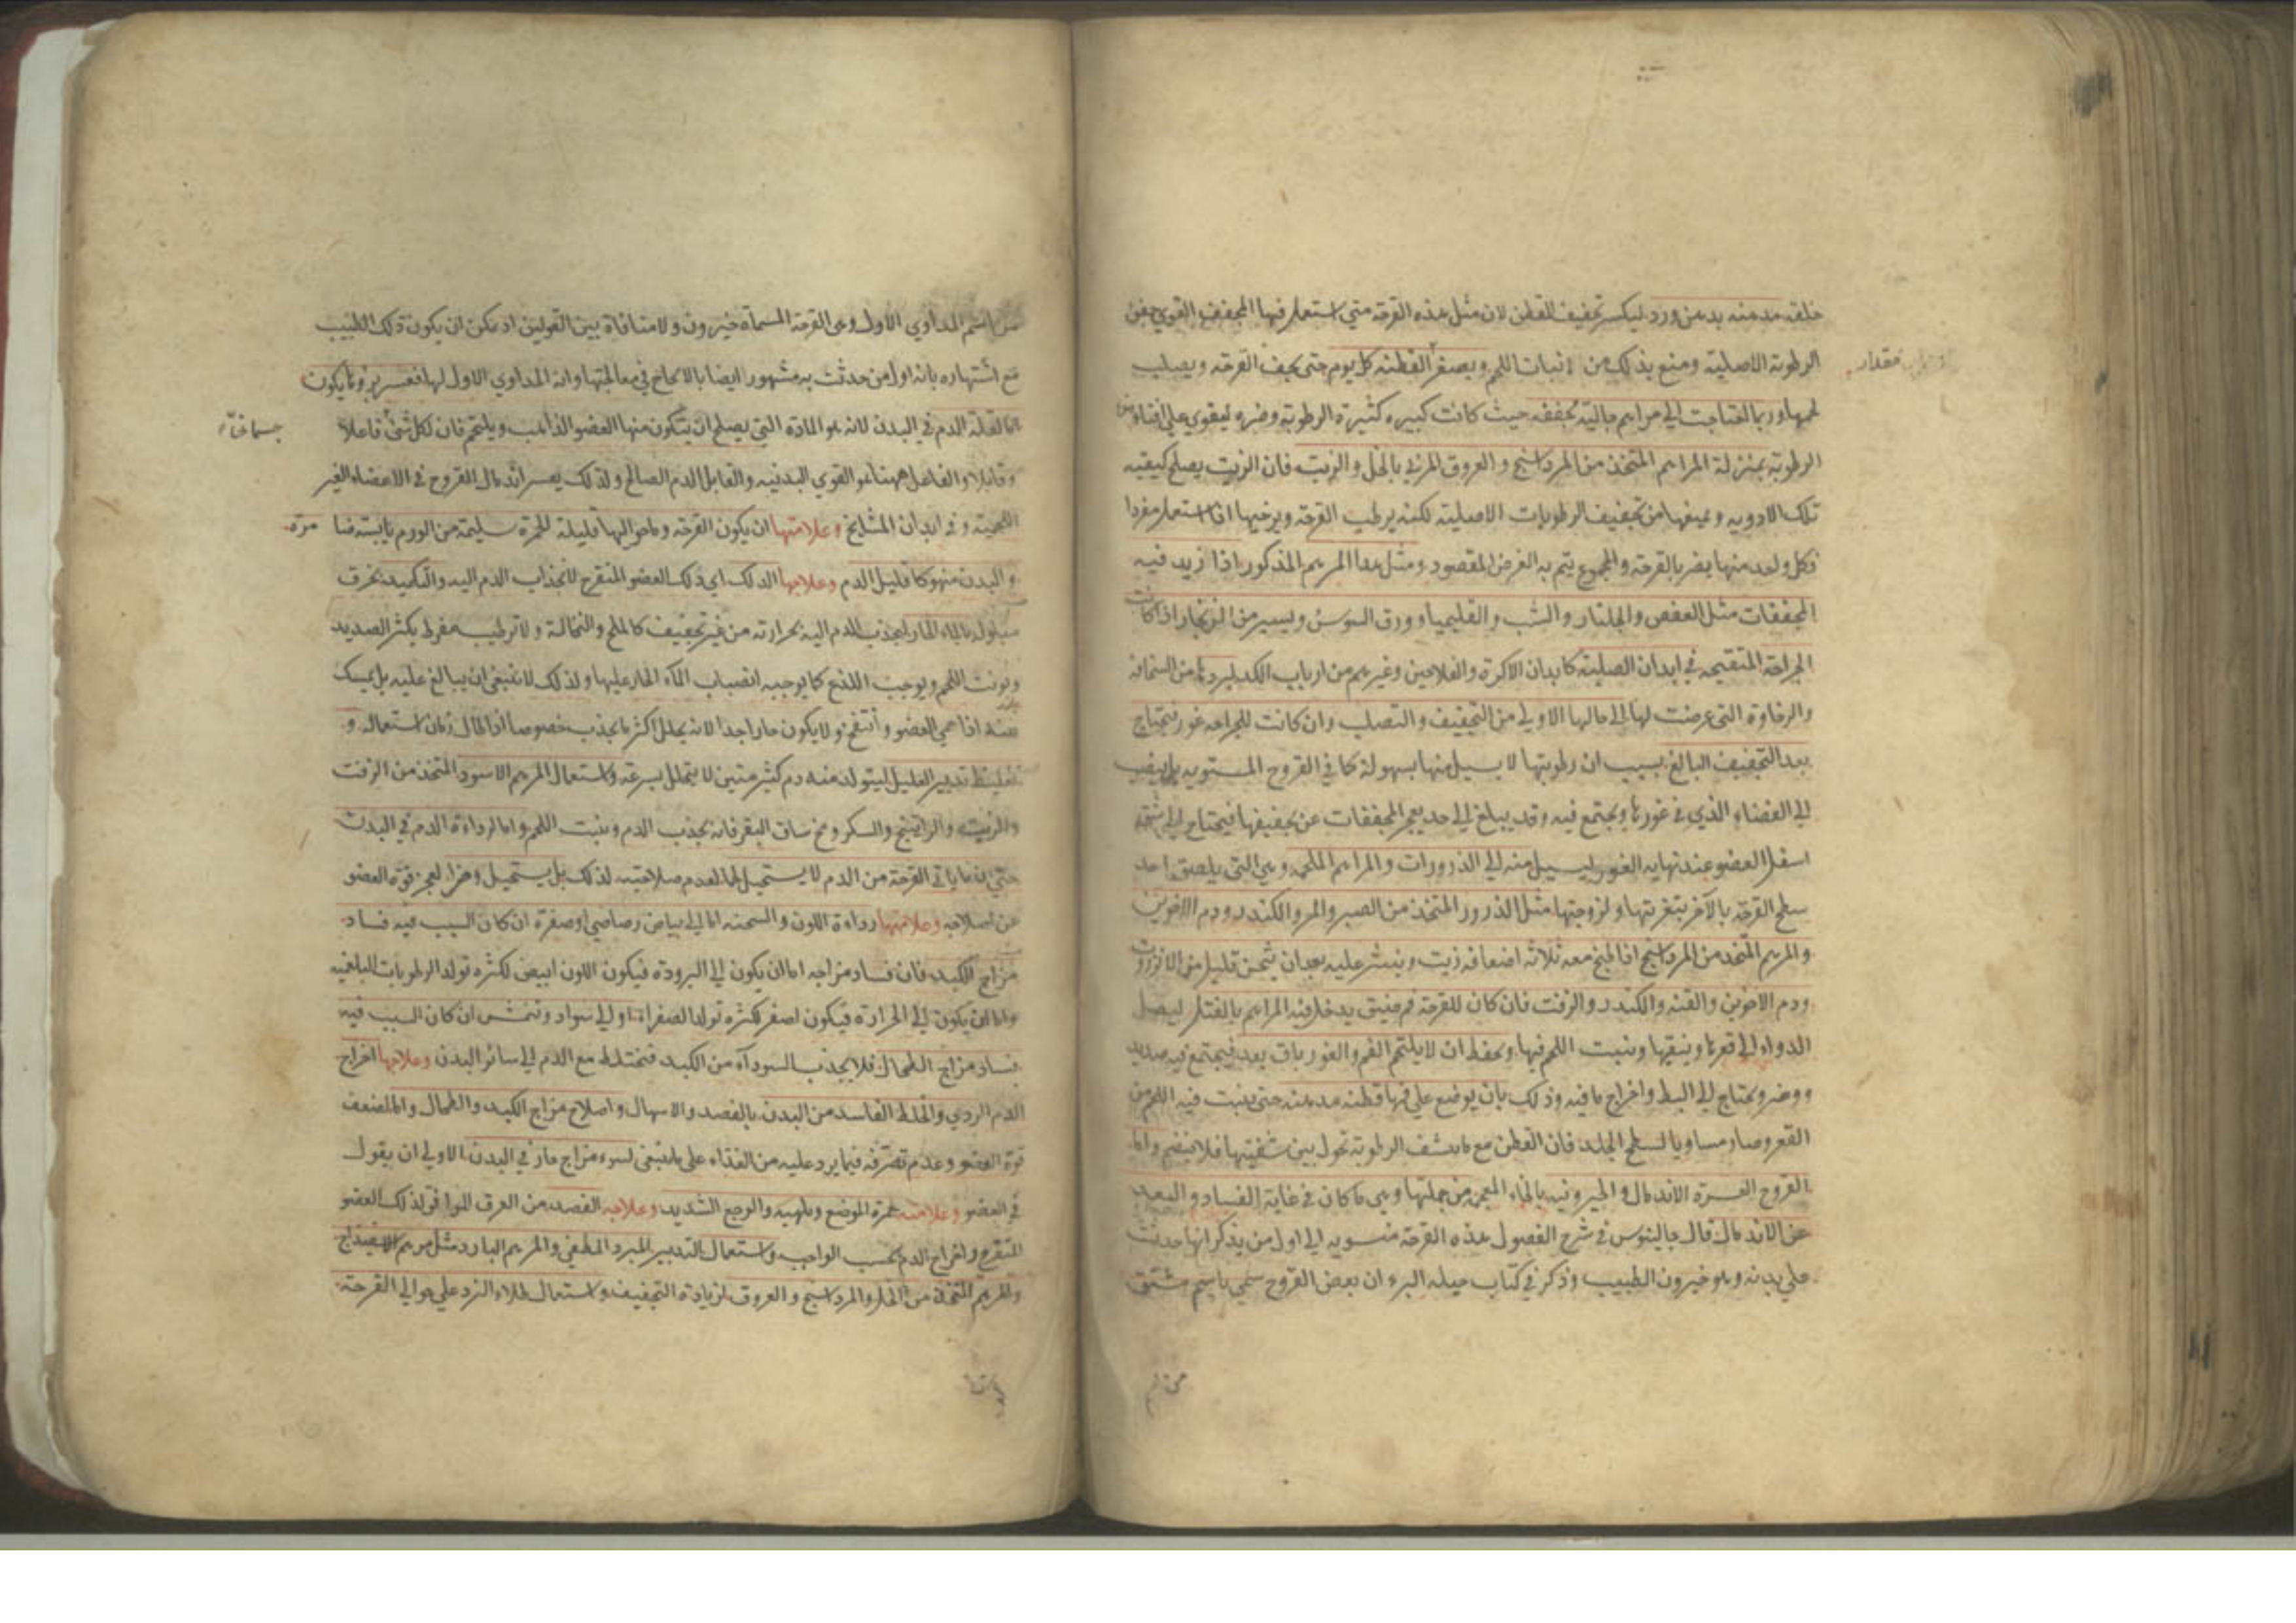 خلقه مدهنه بدهن ورد ليكسر تجفيف القطن لان مثل هذه القرحة متى استعمل فيها المجفف القوي جفف
الرطوبة الاصلية ومنع بذلك من انبات اللحم ويصغر القطنه كل يوم حتى يجف القرحة ويصلب
مقدار
لحمها وربما احتاجت الى مراهم جالية مجففه حيث كانت كبيره كثيرة الرطوبة وضره ليقوي على افناء
الرطوبة بمنزلة المراهم المتخذ من المرداسنج والعروق المربي بالخل والزيت فان الزيت يصلح كيفيه
تلك الادويه ويمنعها من تجفيف الرطوبات الاصلية لكنه يرطب القرحة ويرخيها اذا استعمل مفردا
فكل واحد منها يضر بالقرحة والمجموع يتم به الغرض المقصود ومثل هذا المرهم المذكور اذا زيد فيه
المجففات مثل العفص والجلنار والشب والقليميا وورق السوسن ويسير من الزنجار اذا كانت
الجراحة المتقيحه في ابدان الصلبة كابدان الاكرة والفلاحين وغيرهم من ارباب الكد ليردها من السخافه
والرخاوة التي عرضت لها الى حالها الاولى من التجفيف والتصلب وان كانت للجراحه غور يحتاج
بعد التجفيف البالغ بسبب ان رطوبتها لا يسيل منها بسهولة كما في القروح المستويه بل ينصب
الى الفضاء الذي في غورها ويجتمع فيه وقد يبلغ الى حد يعجز المجففات عن تجفيفها فيحتاج الى شقه
اسفل العضو عند نهايه الغور ليسيل منه الى الذرورات والمراهم الملحمه وهي التي يلصق احد
سطح القرحة بالآخر بتغريتها ولزوجتها مثل الذرور المتخذ من الصبر والمر والكندر ودم الاخوين
والمرهم المتخذ من المرداسنج اذا طبخ معه ثلاثة اضعافه زيت وينثر عليه بعد ان يثخن قليل من الانزروت
ودم الاخوين والقنه والكندر والزفت فان كان للقرحة فم ضيق يدخل فيه المراهم بالفتل ليصل
الدواء الى قعرها وينقيها وينبت اللحم فيها ويحفظ ان لا يلتحم الفم والغور باق بعد فيجتمع فيه صديد
ووضر ويحتاج الى البط واخراج ما فيه وذلك بان يوضع على فمها قطنه مدهنه حتى ينبت فيه اللحم من
القعر وصار مساويا لسطح الجلد فان القطن مع ما ينشف الرطوبة تحول بين شفتيها فلا ينضم واما
القروح العسرة الاندمال والخيرونيه بالخاء المعجمه من جملتها وهي ما كان في غاية الفساد والبعد
عن الاندمال قال جالينوس في شرح الفصول هذه القرحة منسوبه الى اول من يذكر انها حدثت
على بدنه وهو خيرون الطبيب وذكر في كتاب حيلة البرء ان بعض القروح سمي باسم مشتق
من اسم المداوي الاول وهي القرحة المسماة خيرون ولا منافاة بين القولين اذ يمكن ان يكون ذلك الطبيب
مع اشتهاره بانه اول من حدثت به مشهور ايضا بالانجاح في معالجتها وانه المداوي الاول لها فعسر برؤها يكون
اما لقلة الدم في البدن لانه هو المادة التي يصلح ان يتكون منها العضو الذاهب ويلتحم فان لكل شئ فاعلا
وقابلا والفاعل ههنا هو القوي البدنيه والقابل الدم الصالح ولذلك يعسر اندمال القروح في الاعضاء الغير
اللحمية وفي ابدان المشايخ وعلامتها ان يكون القرحة وما حواليها قليلة الحمرة سليمة من الورم يابسته
والبدن منهوكا قليل الدم وعلاجها الدلك اي دلك العضو المتقرح لانجذاب الدم اليه والتكميد بخرق
مبلوله بالماء الحار ليجذب الدم اليه بحرارته من غير تجفيف كالملح والنخالة ولا ترطيب مفرط يكثر الصديد
ويوجب اللذع كما يوجبه انصباب الماء الحار عليها ولذلك لا ينبغي ان يبالغ عليه بل يمسك
عنه اذا حمي العضو وانتفخ ولا يكون حارا جدا لانه يحلل اكثر ما يجذب خصوصا اذا طال زمان استعماله و
تغليظ تدبير العليل ليتولد منه دم كثير متين لا يتحلل بسرعة واستعمال المرهم الاسود المتخذ من الزفت
والزيت والراتينج والسكر ومخ ساق البقر فانه يجذب الدم وينبت اللحم واما لرداءة الدم في البدن
حتى ان ما ياتي القرحة من الدم لا يستحيل لحما لعدم صلاحيته لذلك بل يستحيل وضرا لعجز قوة العضو
عن اصلاحه وعلامتها رداءة اللون والسحنه اما الى بياض رصاصي او صفرة ان كان السبب فيه فساد
مزاج الكبد فان فساد مزاجه اما ان يكون الى البرودة فيكون اللون ابيض لكثره تولد الرطوبات البلغميه
واما ان يكون الى الحرارة فيكون اصفر لكثره تولد الصفراء او الى سواد ونمش ان كان السبب فيه
فساد مزاج الطحال فلا يجذب السوداء من الكبد فتختلط مع الدم الى سائر البدن وعلاجها اخراج
الدم الردي والخلط الفاسد من البدن بالفصد والاسهال واصلاح مزاج الكبد والطحال واما لضعف
قوة العضو وعدم تصرفه فيما يرد عليه من الغذاء على ما ينبغي لسوء مزاج حار في البدن الاولى ان يقول
في العضو وعلامته حمرة الموضع وتلهبه والوجع الشديد وعلاجه الفصد من العرق الموافق لذلك العضو
المتقرح واخراج الدم بحسب الواجب واستعمال التدبير المبرد المطفي والمرهم البارد مثل مرهم الاسفيداج
والمرهم المتخذ من الخل والمرداسنج والعروق لزيادة التجفيف واستعمال طلاء البرد على حوالي القرحة